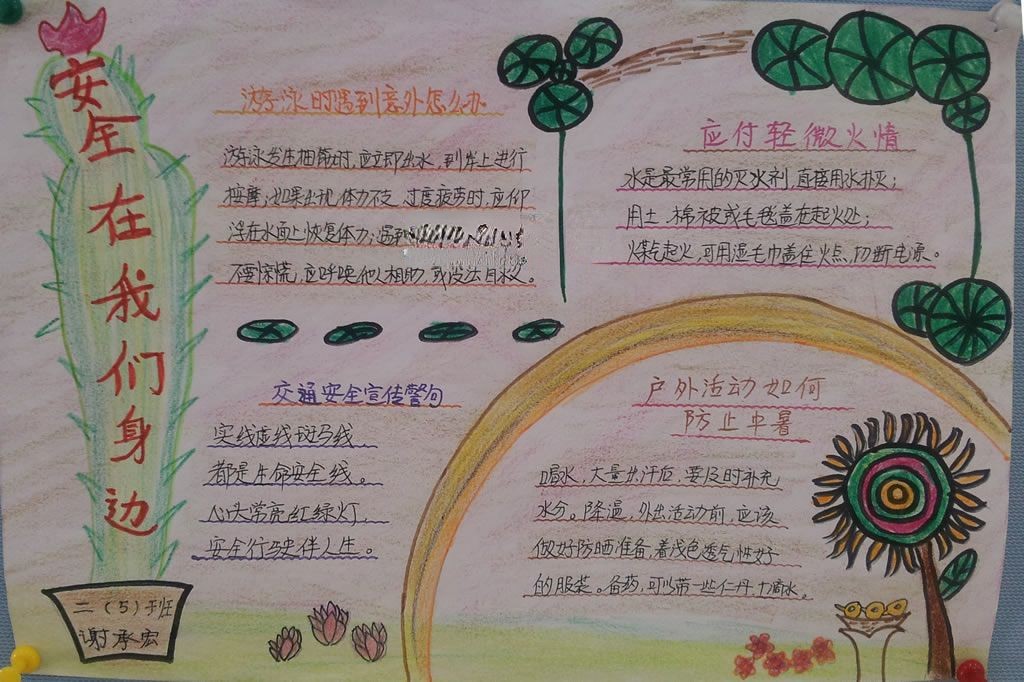 安全在我们身边
二（5）班
谢承宏
游泳时遇到意外怎么办
游泳发生抽筋时,应立即出水,到岸上进行
按摩;如果出现体力不支,过度疲劳时,应仰
浮在水面上恢复体力;遇到
不要惊慌,应呼唤他人相助,或设法自救。
交通安全宣传警句
实线虚线斑马线
都是生命安全线。
心头常亮红绿灯,
安全行驶伴人生。
应付轻微火情
水是最常用的灭火剂,直接用水扑灭;
用土、棉被或毛毯盖在起火处;
煤气起火,可用湿毛巾盖住火点,切断电源。
户外活动如何
防止中暑
喝水,大量出汗后,要及时补充
水分。降温,外出活动前,应该
做好防晒准备,着浅色透气性好
的服装。备药,可以带一些仁丹,十滴水。